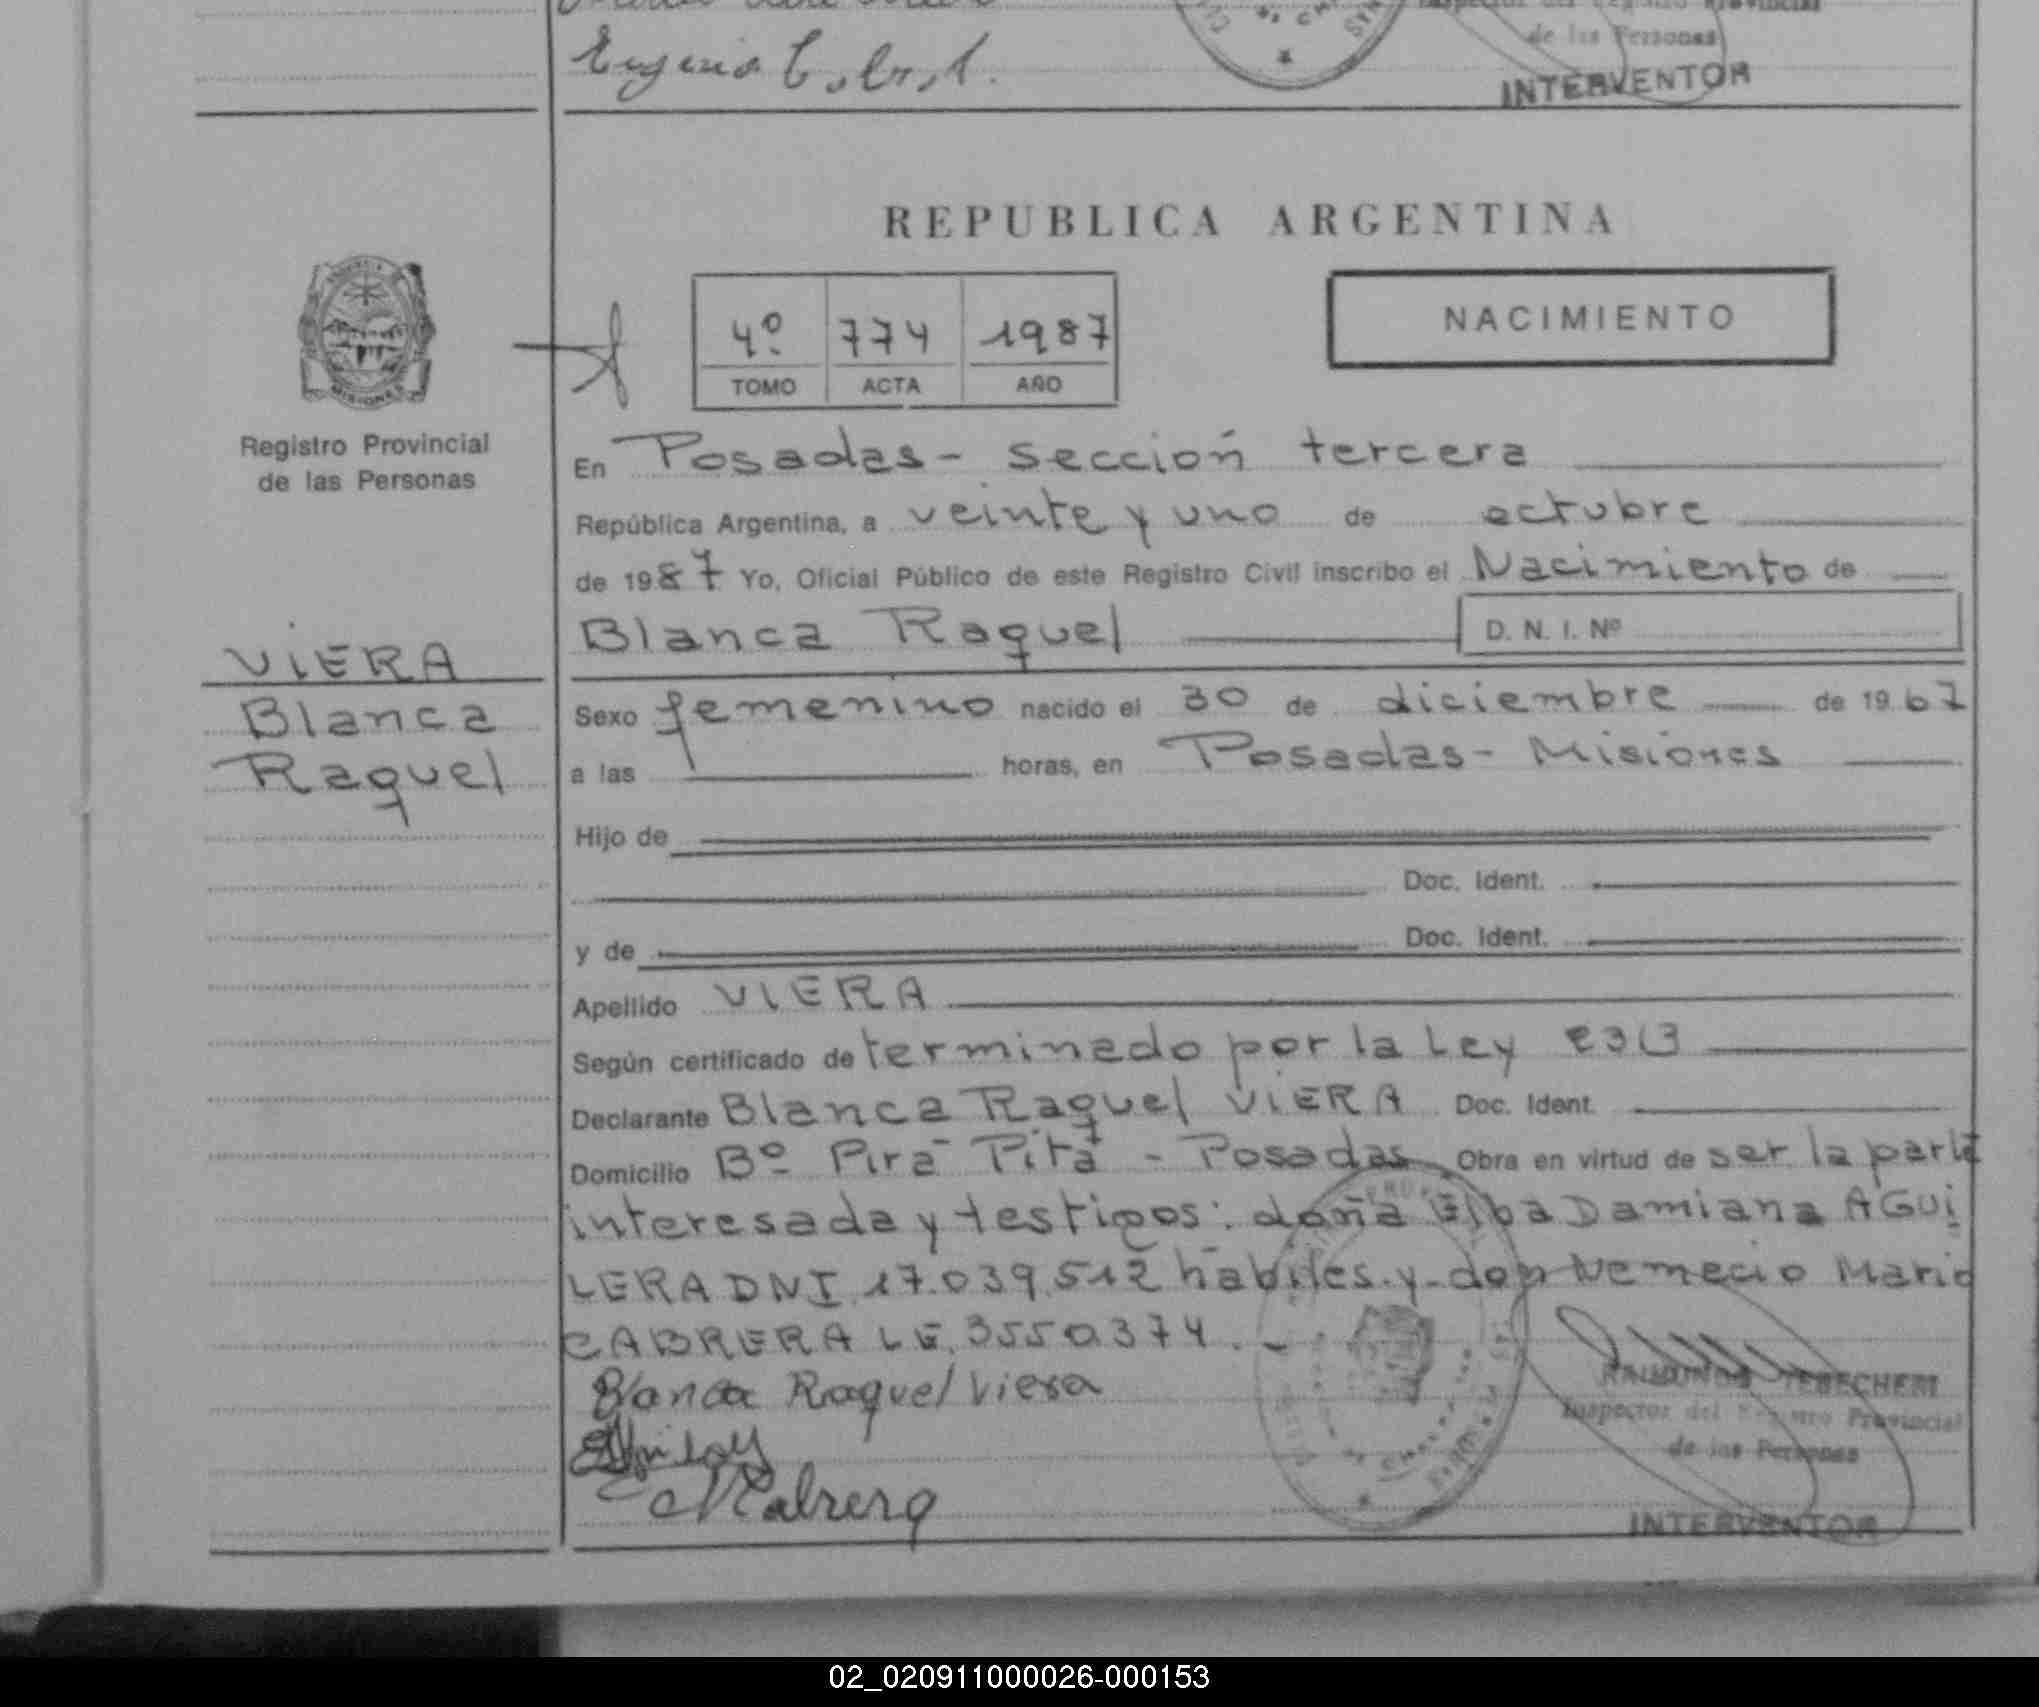 Eugenio
de las Personas
INTERVENTOR
REPUBLICA ARGENTINA
NACIMIENTO
4º 774 1987
TOMO ACTA AÑO
MISIONES
Registro Provincial
de las Personas
En Posadas - sección tercera
República Argentina, a veinte y uno de octubre
de 1987 Yo, Oficial Público de este Registro Civil inscribo el Nacimiento de
Blanca Raquel D. N. I. Nº
VIERA
Blanca
Raquel
Sexo femenino nacido el 30 de diciembre de 1967
a las horas, en Posadas - Misiones
Hijo de
Doc. Ident.
y de Doc. Ident.
Apellido VIERA
Según certificado de terminado por la Ley
Declarante Blanca Raquel VIERA Doc. Ident.
Domicilio Bº Pira Pitá - Posadas Obra en virtud de ser la parte
interesada y testigos: doña Elba Damiana AGUI
LERA DNI 17.039.512 hábiles y don Nemecio Mario
CABRERA LE. 3550.374. -
Blanca Raquel Viera
Cabrera
RAIMUNDO
Inspector del Registro Provincial
de las Personas
INTERVENTOR
02_020911000026-000153